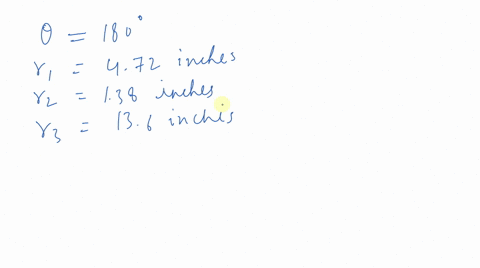 θ = 180°
r₁ = 4.72 inches
r₂ = 1.38 inches
r₃ = 13.6 inches